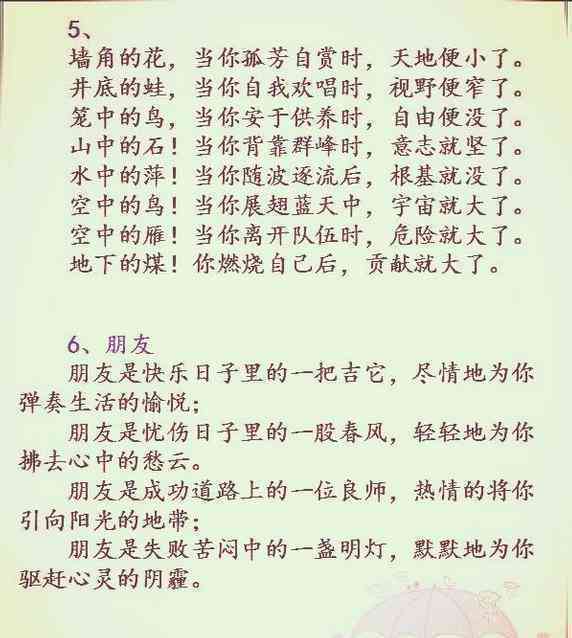 5、
墙角的花，当你孤芳自赏时，天地便小了。
井底的蛙，当你自我欢唱时，视野便窄了。
笼中的鸟，当你安于供养时，自由便没了。
山中的石！当你背靠群峰时，意志就坚了。
水中的萍！当你随波逐流后，根基就没了。
空中的鸟！当你展翅蓝天中，宇宙就大了。
空中的雁！当你离开队伍时，危险就大了。
地下的煤！你燃烧自己后，贡献就大了。
6、朋友
朋友是快乐日子里的一把吉它，尽情地为你
弹奏生活的愉悦；
朋友是忧伤日子里的一股春风，轻轻地为你
拂去心中的愁云。
朋友是成功道路上的一位良师，热情的将你
引向阳光的地带；
朋友是失败苦闷中的一盏明灯，默默地为你
驱赶心灵的阴霾。